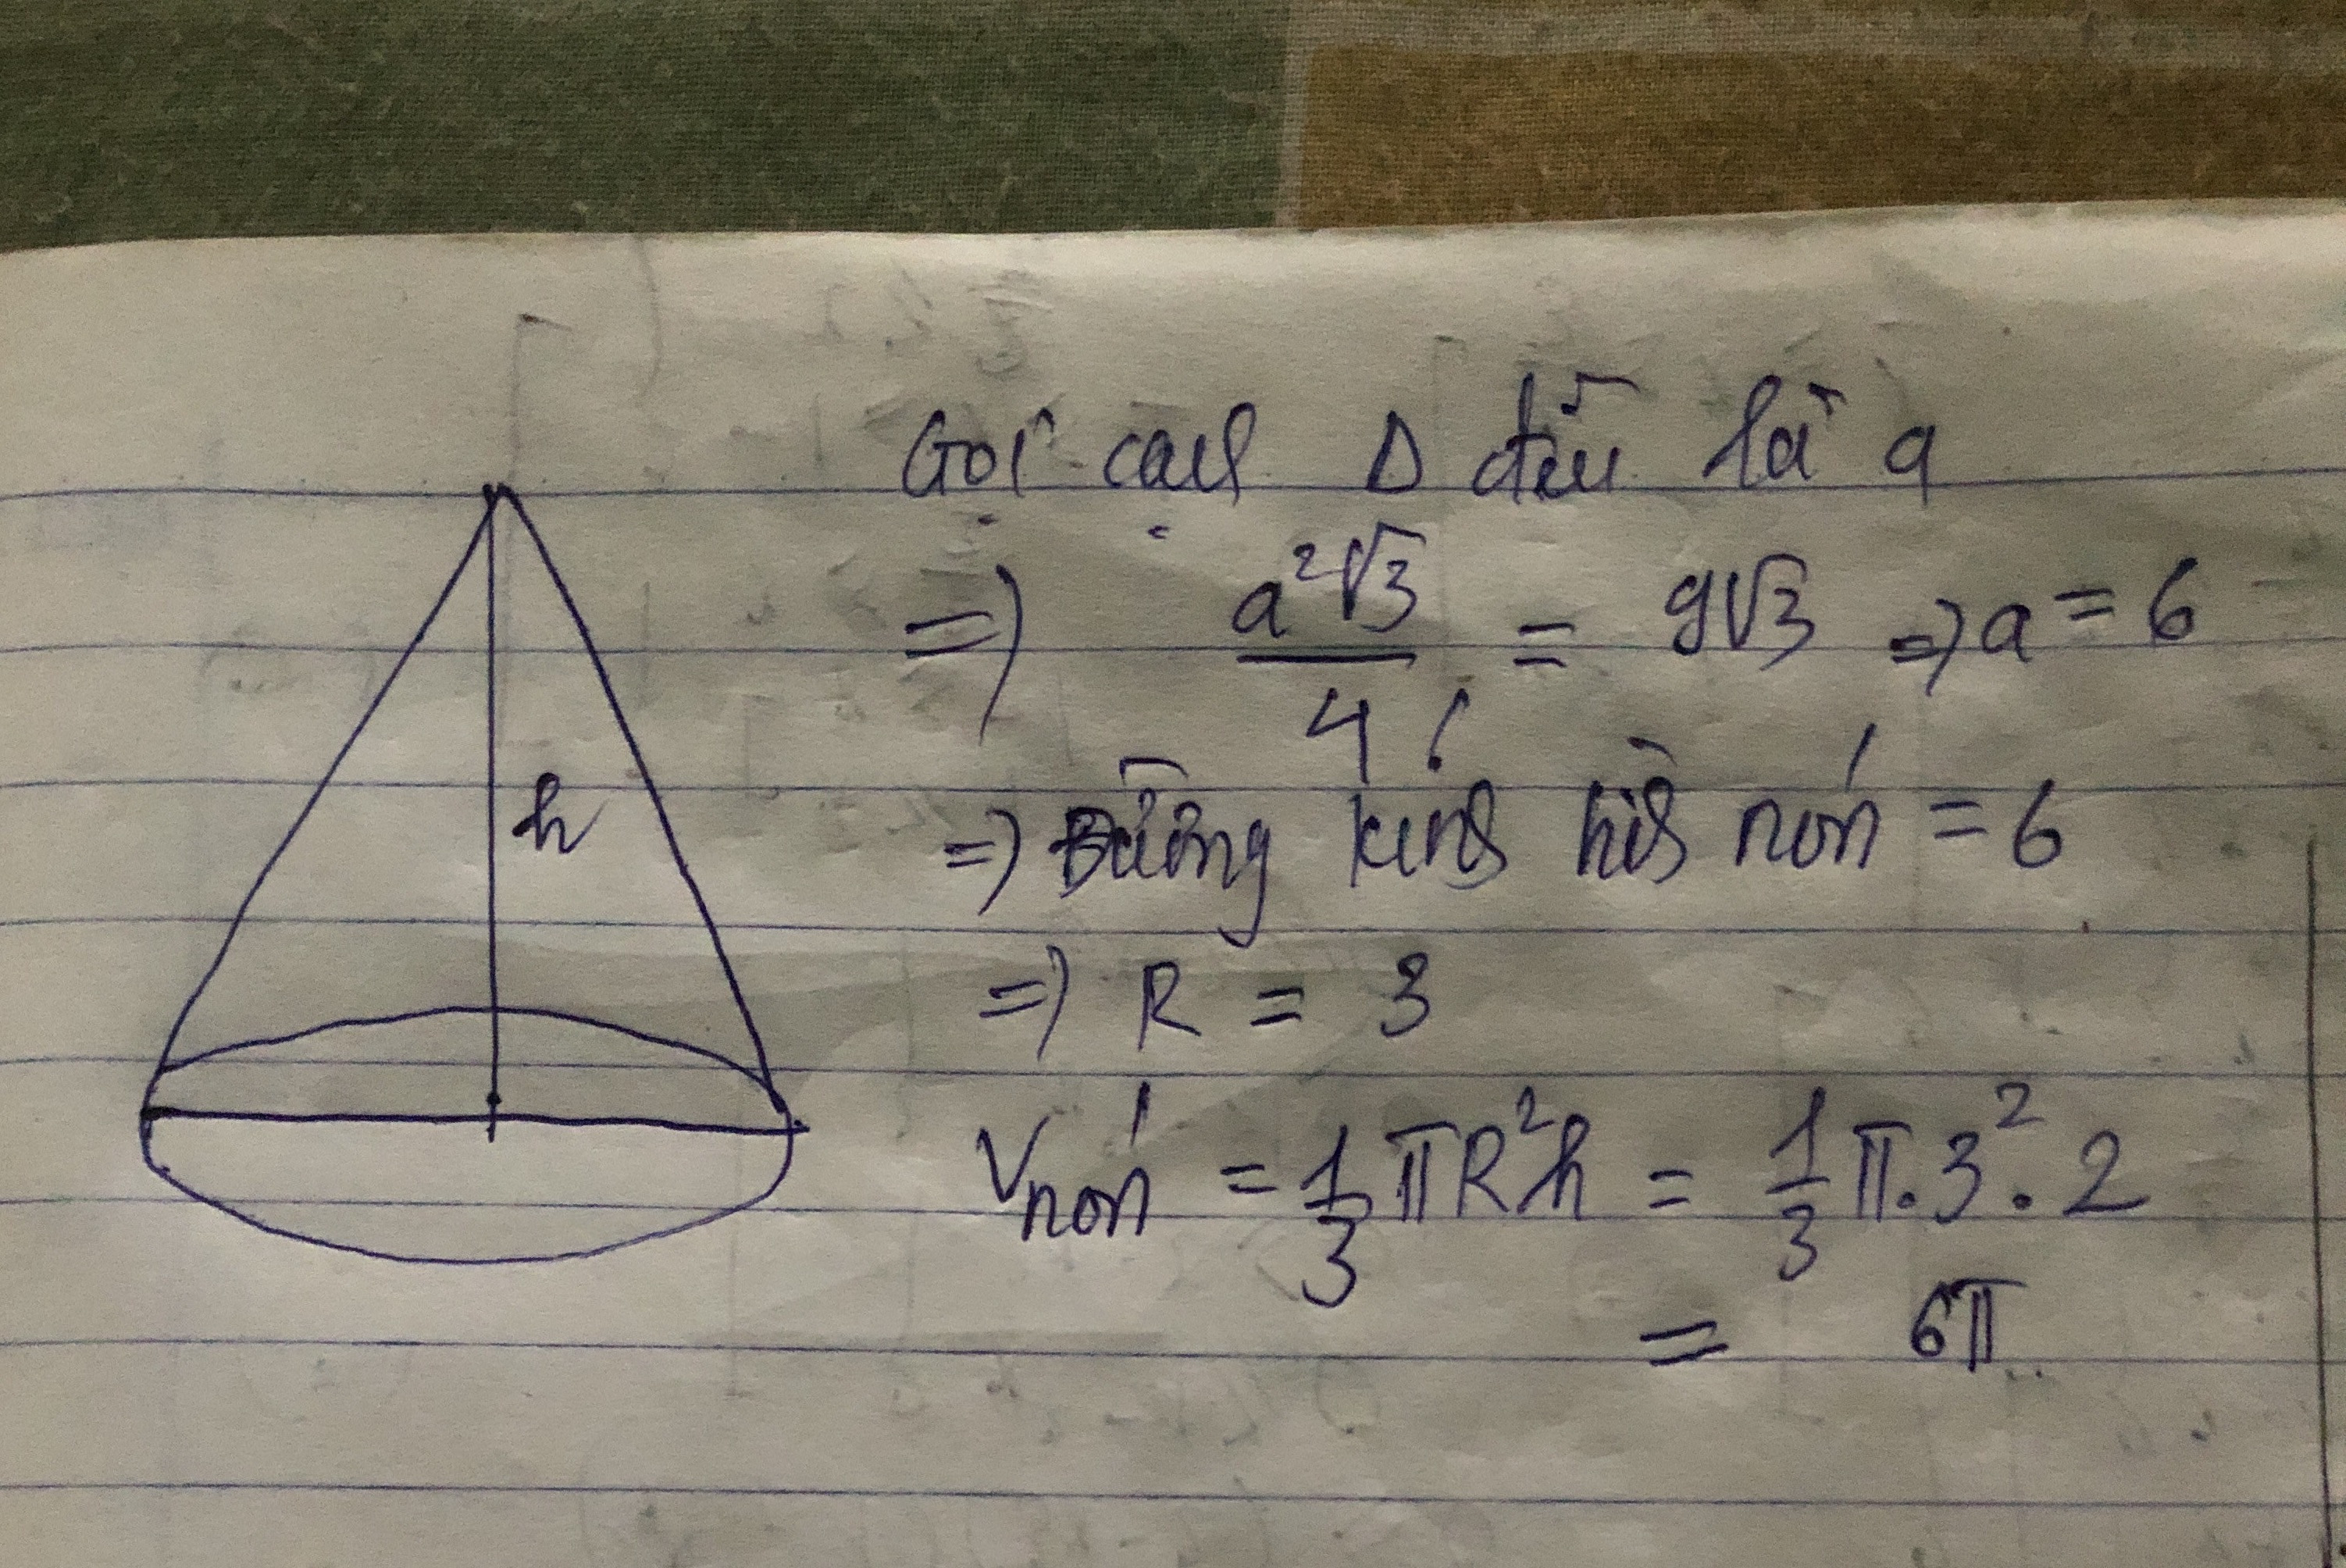 Gọi cạnh Δ đều là a
h
=> a²√3/4 = 9√3 => a = 6
=> Đường kính hình nón = 6
=> R = 3
Vnón = 1/3 πR²h = 1/3 π.3².2
= 6π